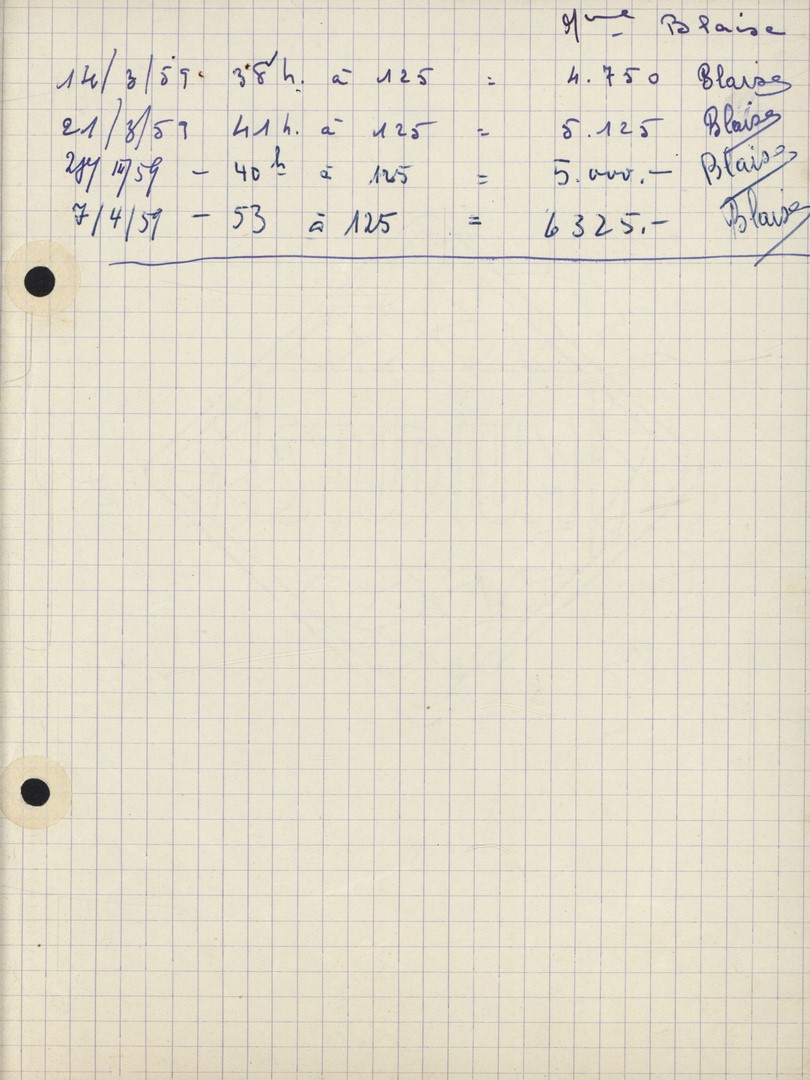 Mme Blaise
14/3/59. 38 h. à 125 = 4.750 Blaise
21/3/59 41 h. à 125 = 5.125 Blaise
/59 – 40h à 125 = 5.000.– Blaise
7/4/59 – 53 à 125 = 6325.– Blaise